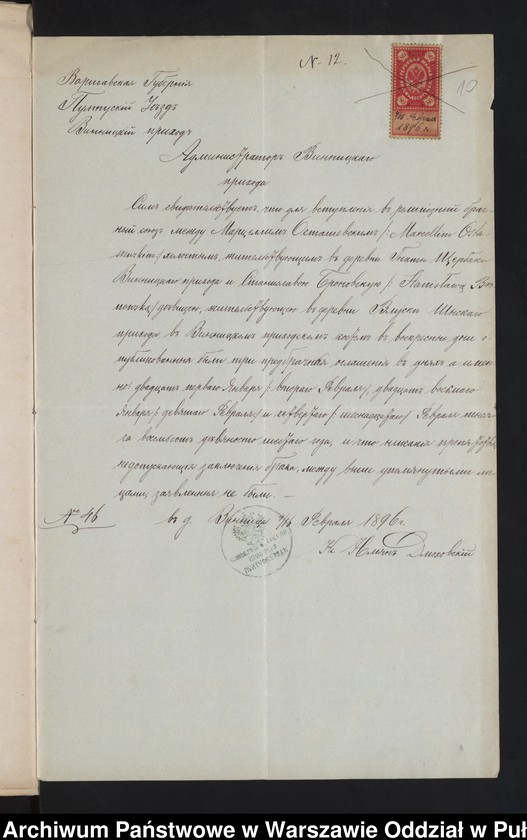 N- 12.
10
4/16 Февраля
1896 г.
Варшавская Губернія
Пултускій Уѣздъ
Винницкій приходъ
Администраторъ Винницкаго
прихода
Симъ свидѣтельствуетъ, что для вступленія въ религіозный брач-
ный союзъ между Марцеліемъ Осташевскимъ /: Marcellim Osta-
szewskim/ холостымъ, жительствующимъ въ деревнѣ
Винницкаго прихода и Станиславою Броновскою /: Stanisławą Bro-
nowską/ дѣвицею, жительствующею въ деревнѣ
прихода въ Винницкомъ приходскомъ костелѣ въ воскресные дни о-
публикованы были три предбрачныя оглашенія въ дняхъ а имен-
но: двадцать перваго Января /: втораго Февраля/, двадцать восьмаго
Января /: девятаго Февраля/ и четвертаго /: шестнадцатаго/ Февраля тыся-
ча восемьсотъ девяносто шестаго года, и что никакія препятствія,
недопускающія заключенія брака, между выше упомянутыми ли-
цами, заявлены не были. —
No 46
въ д. Винница 4/16 Февраля 1896 г.
Кс.
Archiwum Państwowe w Warszawie Oddział w Puł